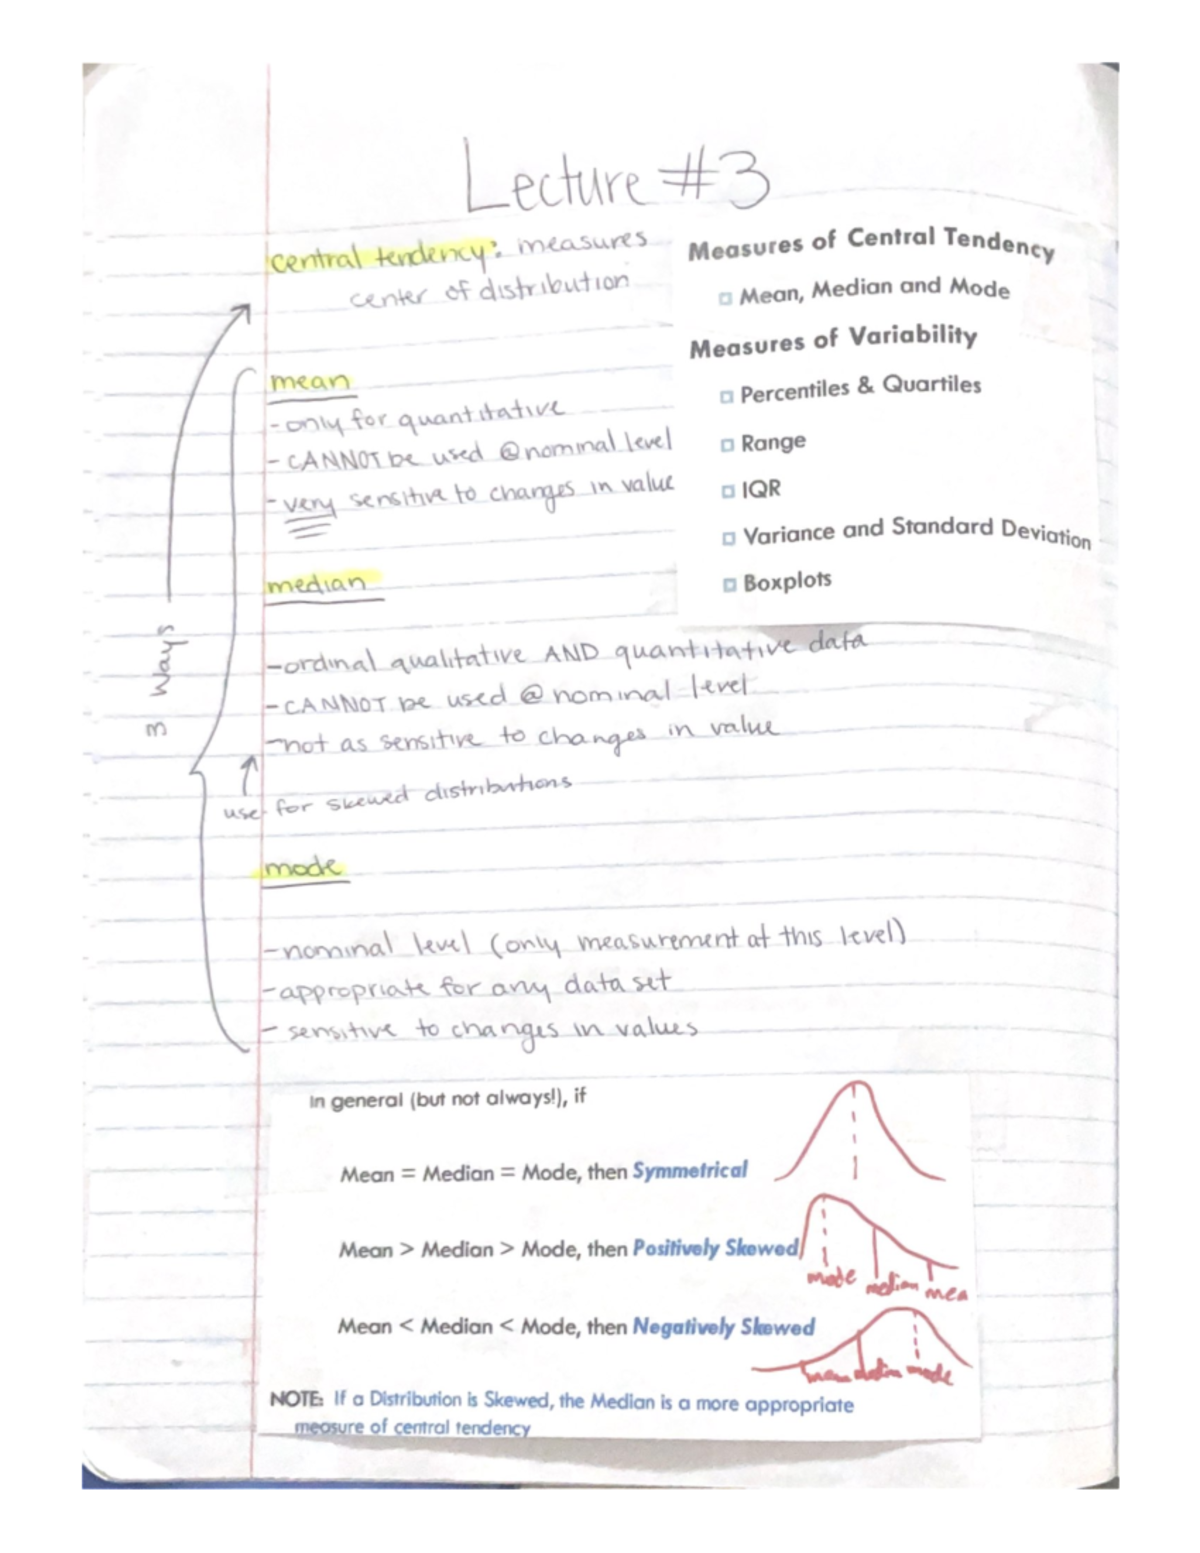 Lecture #3
central tendency: measures
center of distribution
Measures of Central Tendency
Mean, Median and Mode
Measures of Variability
Percentiles & Quartiles
Range
IQR
Variance and Standard Deviation
Boxplots
3 ways
mean
-only for quantitative
-CANNOT be used @ nominal level
-very sensitive to changes in value
median
-ordinal qualitative AND quantitative data
-CANNOT be used @ nominal level
-not as sensitive to changes in value
use for skewed distributions
mode
-nominal level (only measurement at this level)
-appropriate for any data set
- sensitive to changes in values
In general (but not always!), if
Mean = Median = Mode, then Symmetrical
Mean > Median > Mode, then Positively Skewed
mode median mea
Mean < Median < Mode, then Negatively Skewed
mean median mode
NOTE: If a Distribution is Skewed, the Median is a more appropriate
measure of central tendency